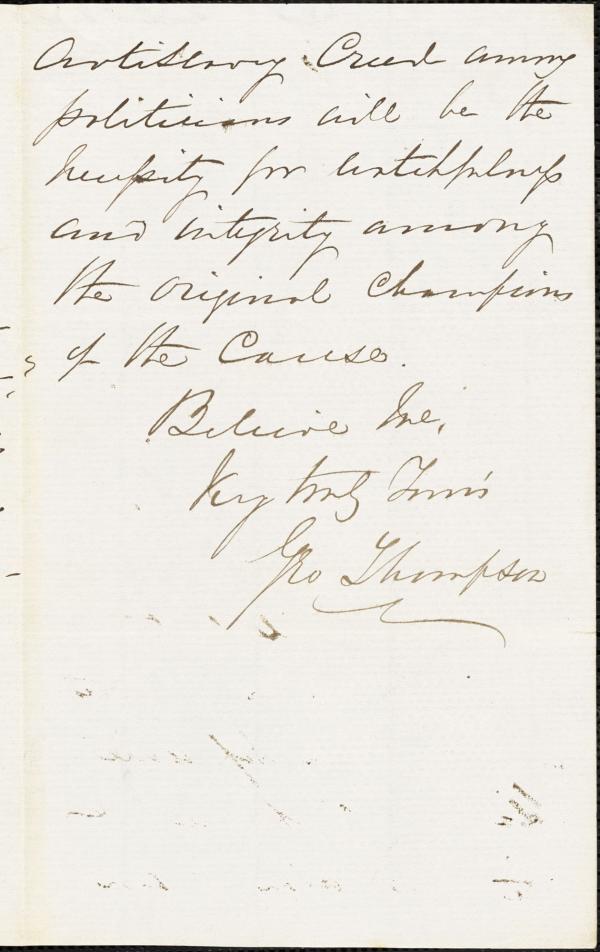 Antislavery Creed among
politicians will be the
necessity for watchfulness
and integrity among
the original Champions
of the Cause.
Believe Me,
Very truly Yours
Geo Thompson